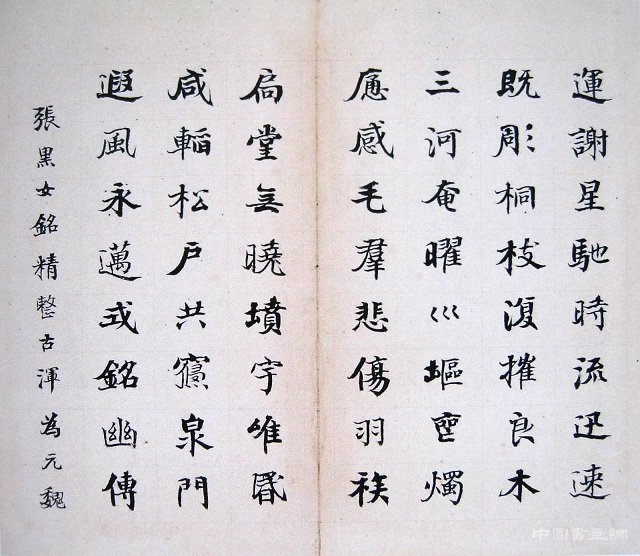 運謝星馳時流迅速
既彫桐枝復摧良木
三河奄曜巛堰電燭
應感毛羣悲傷羽族
扃堂無曉墳宇唯昏
咸韜松戶共寢泉門
遐風永邁式銘幽傳
張黑女銘精整古渾為元魏
中国書画網